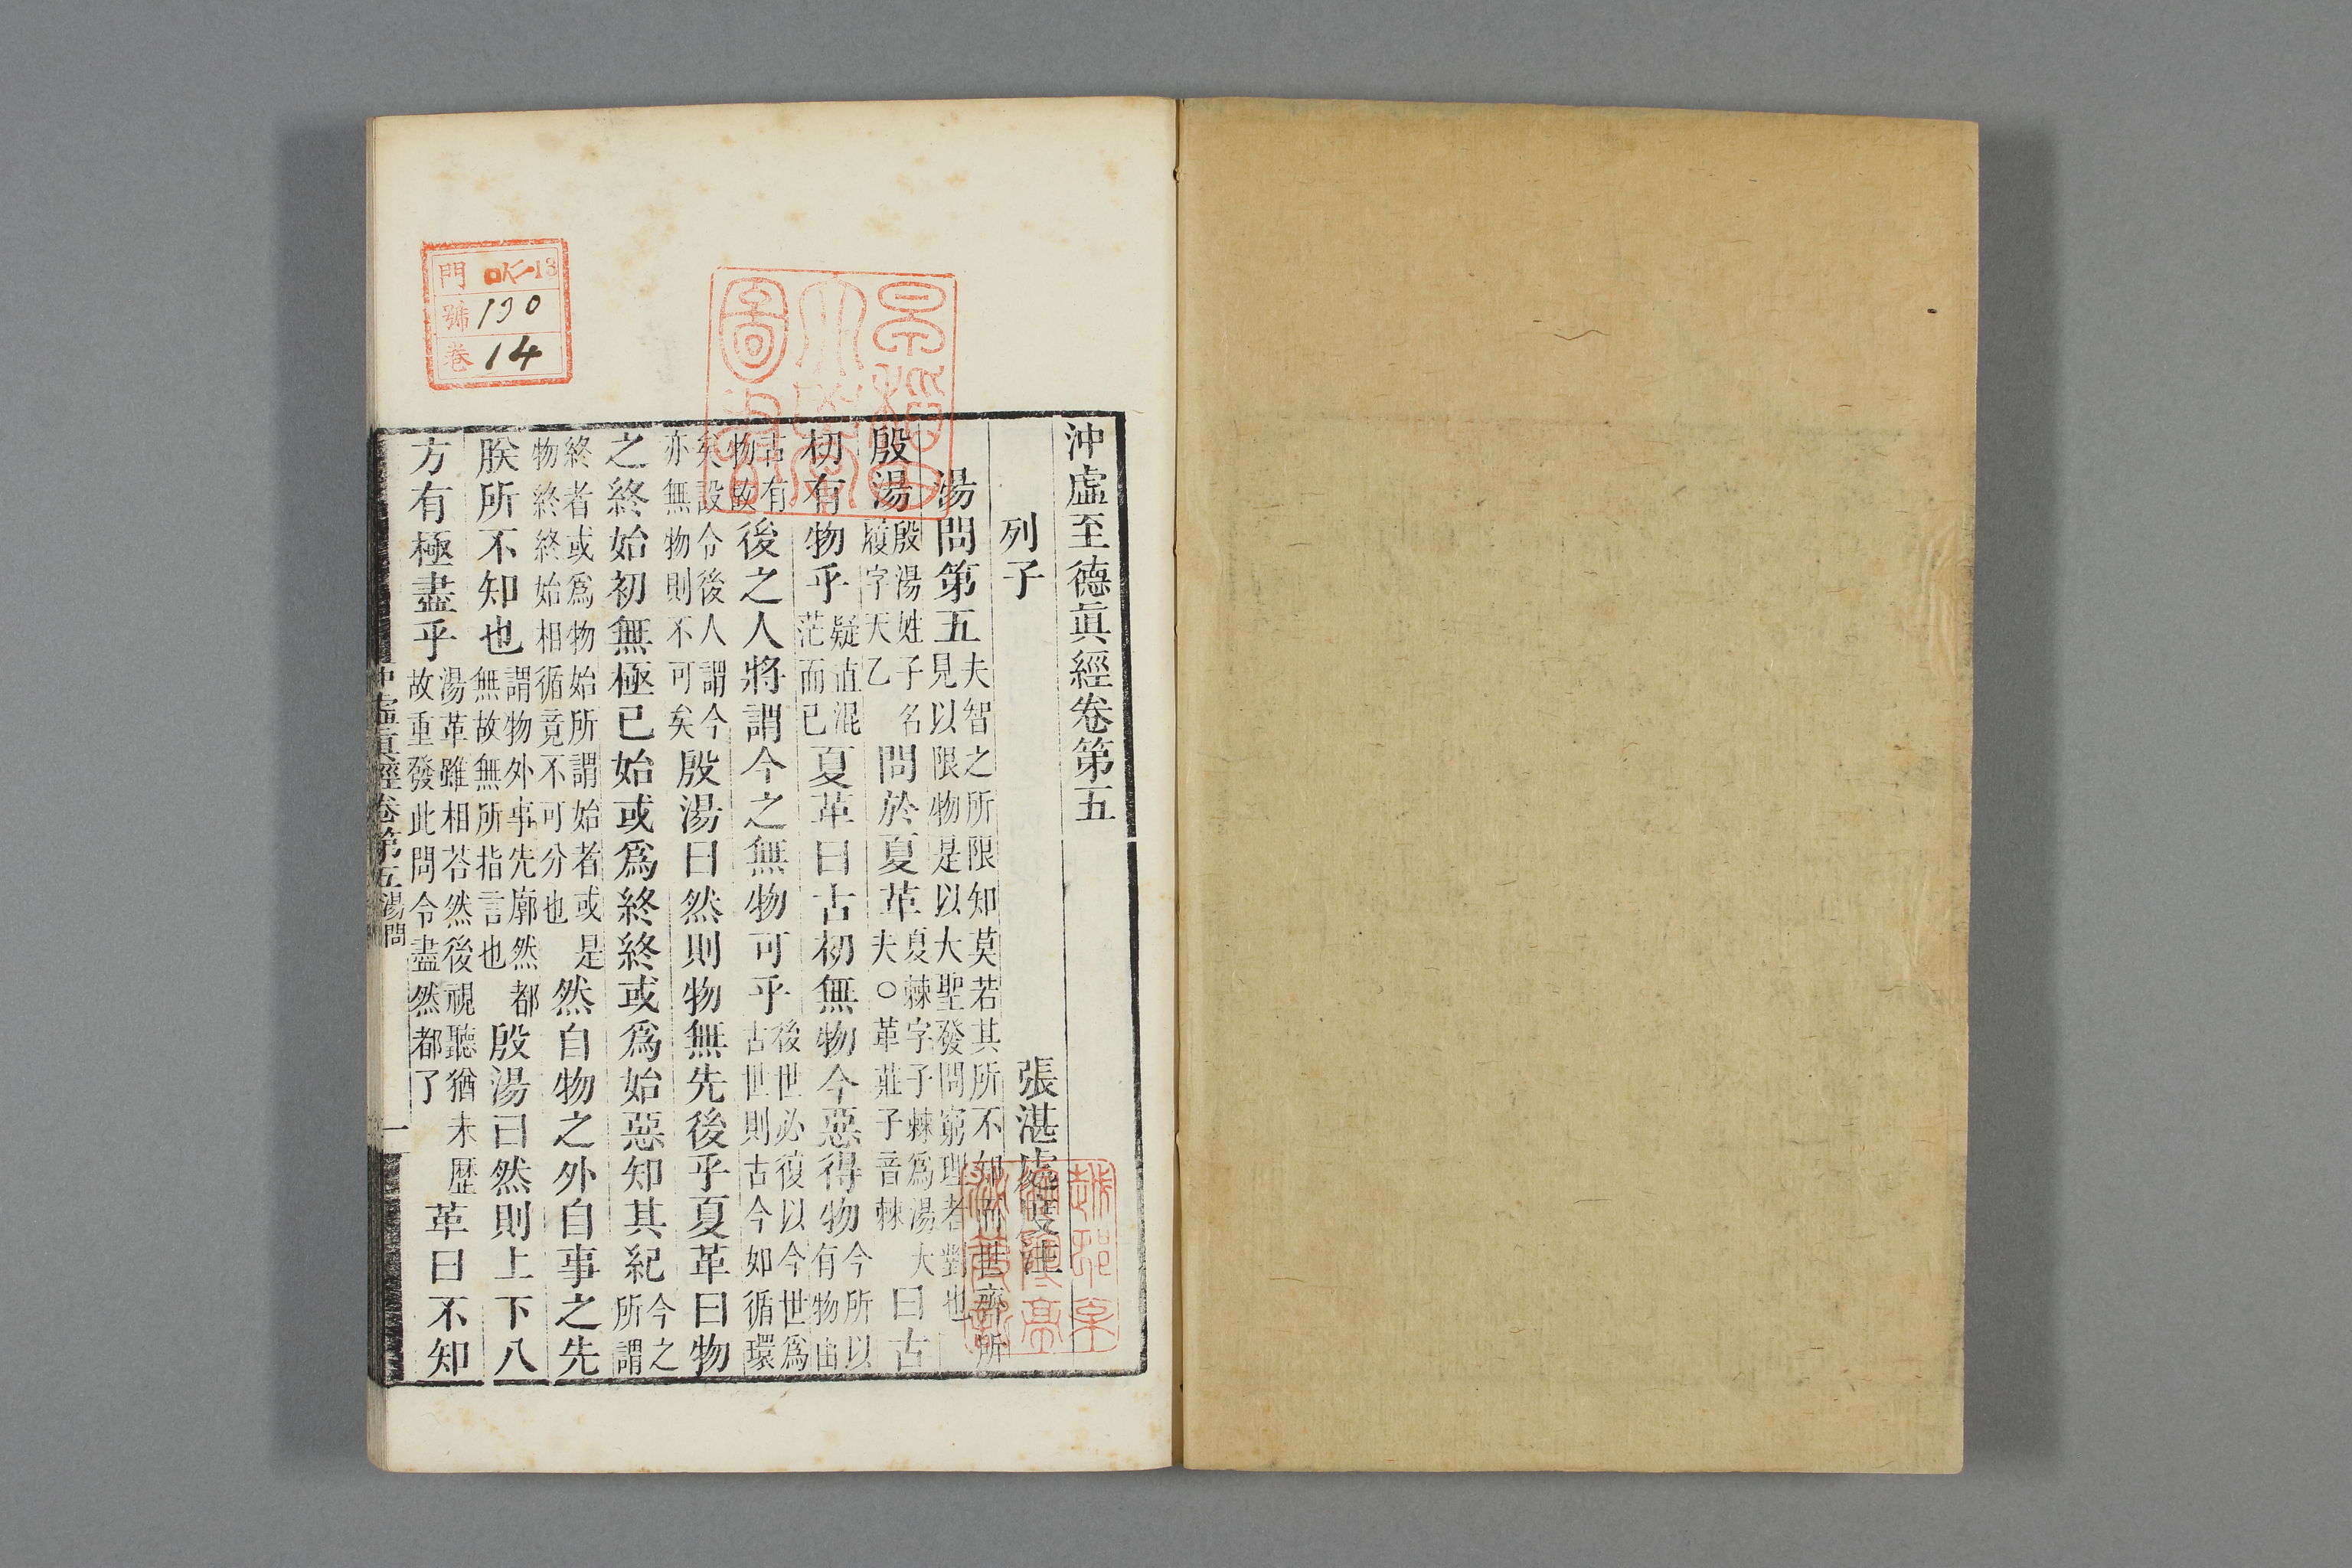 沖虛至德眞經卷第五
列子 張湛處度注
湯問第五 夫智之所限知莫若其所不知而世齊所
見以限物是以大聖發問窮理者對也
殷湯 殷湯姓子名
履字天乙 問於夏革 夏棘字子棘爲湯大
夫○革莊子音棘 曰古
初有物乎 疑直混
茫而已 夏革曰古初無物今惡得物 今所以
有物由
古有
物故 後之人將謂今之無物可乎 後世必復以今世爲
古世則古今如循環
矣設令後人謂今
亦無物則不可矣 殷湯曰然則物無先後乎夏革曰物
之終始初無極已始或爲終終或爲始惡知其紀 今之
所謂
終者或爲物始所謂始者或是
物終終始相循竟不可分也 然自物之外自事之先
朕所不知也 謂物外事先廓然都
無故無所指言也 殷湯曰然則上下八
方有極盡乎 湯革雖相荅然後視聽猶未歷
故重發此問令盡然都了 革曰不知
沖虛眞經卷第五湯問 一
門 13
號 190
卷 14